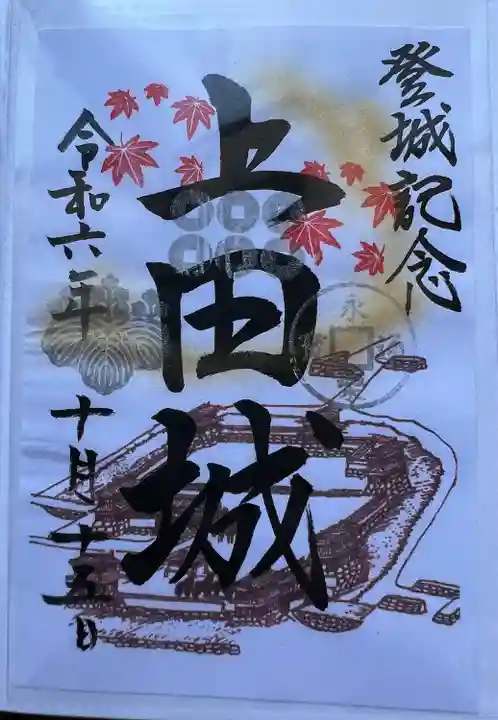 登城記念
上田城
令和六年
十月十五日